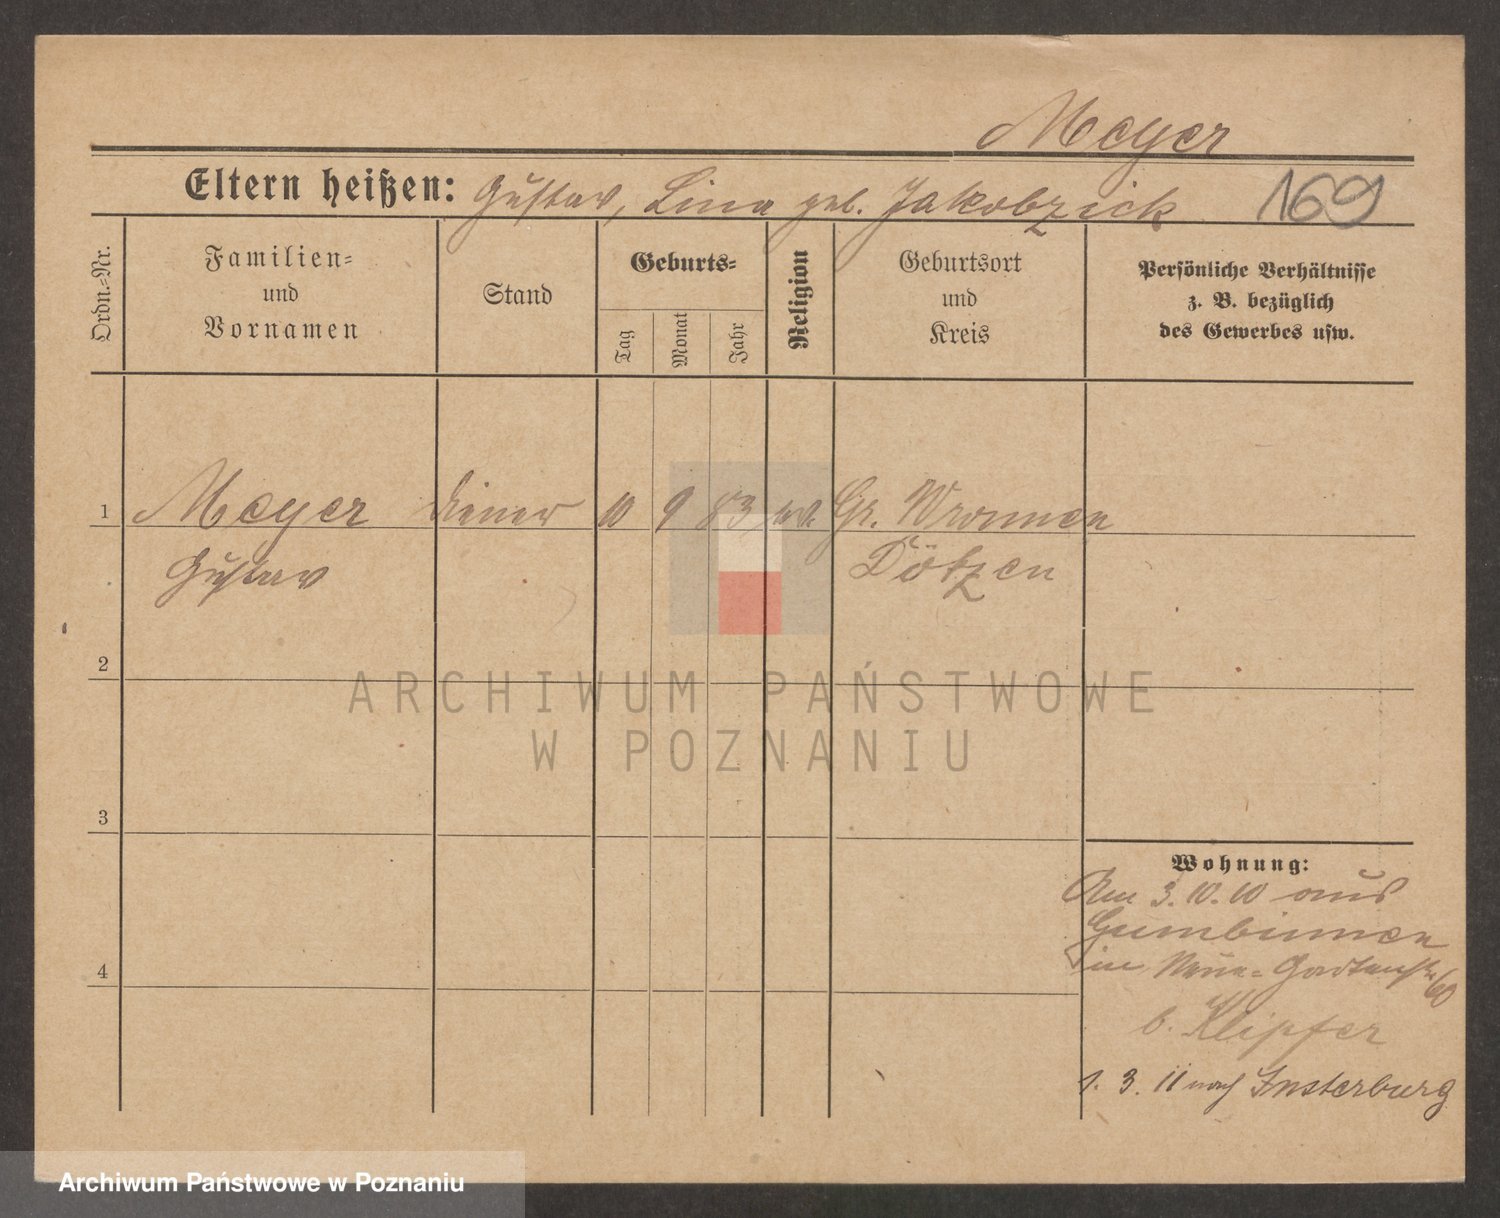 Meyer
Eltern heißen: Gustav, Lina geb. Jakobzick
169
Ordn.-Nr.
Familien-
und
Vornamen
Stand
Geburts-
Tag
Monat
Jahr
Religion
Geburtsort
und
Kreis
Persönliche Verhältnisse
z. B. bezüglich
des Gewerbes usw.
1 Meyer Diener 10 9 83 ev. Gr. Wronnen
Gustav Lötzen
2
ARCHIWUM PAŃSTWOWE
W POZNANIU
3
Wohnung:
Am 3.10.10 aus
Gumbinnen
in Neue-Gartenstr. 60
4
b. Klipfer
1. 3. 11 nach Insterburg
Archiwum Państwowe w Poznaniu